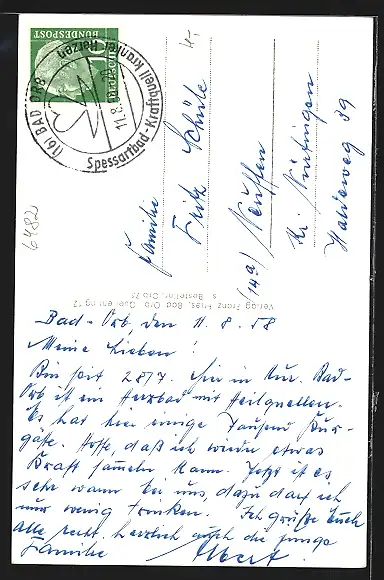 DEUTSCHE
BUNDESPOST
(16) BAD ORB
Spessartbad-Kraftquell kranker Herzen
11.8.58
4,-
6482
Familie
Fritz Schüle
(14a) Neuffen
Kr. Nürtingen
Haldeweg 39
Verlag Franz Fries, Bad Orb
Bad-Orb, den 11.8.58
Meine Lieben!
Bin seit 28/7. hier in Kur. Bad-
Orb ist ein Herzbad mit Heilquellen.
Es hat hier einige Tausend Kur-
gäste. Hoffe, daß ich wieder etwas
Kraft sammeln kann. Jetzt ist es
sehr warm bei uns, dazu darf ich
nur wenig trinken. Ich grüße Euch
alle recht herzlich auch die junge
Familie
Albert.